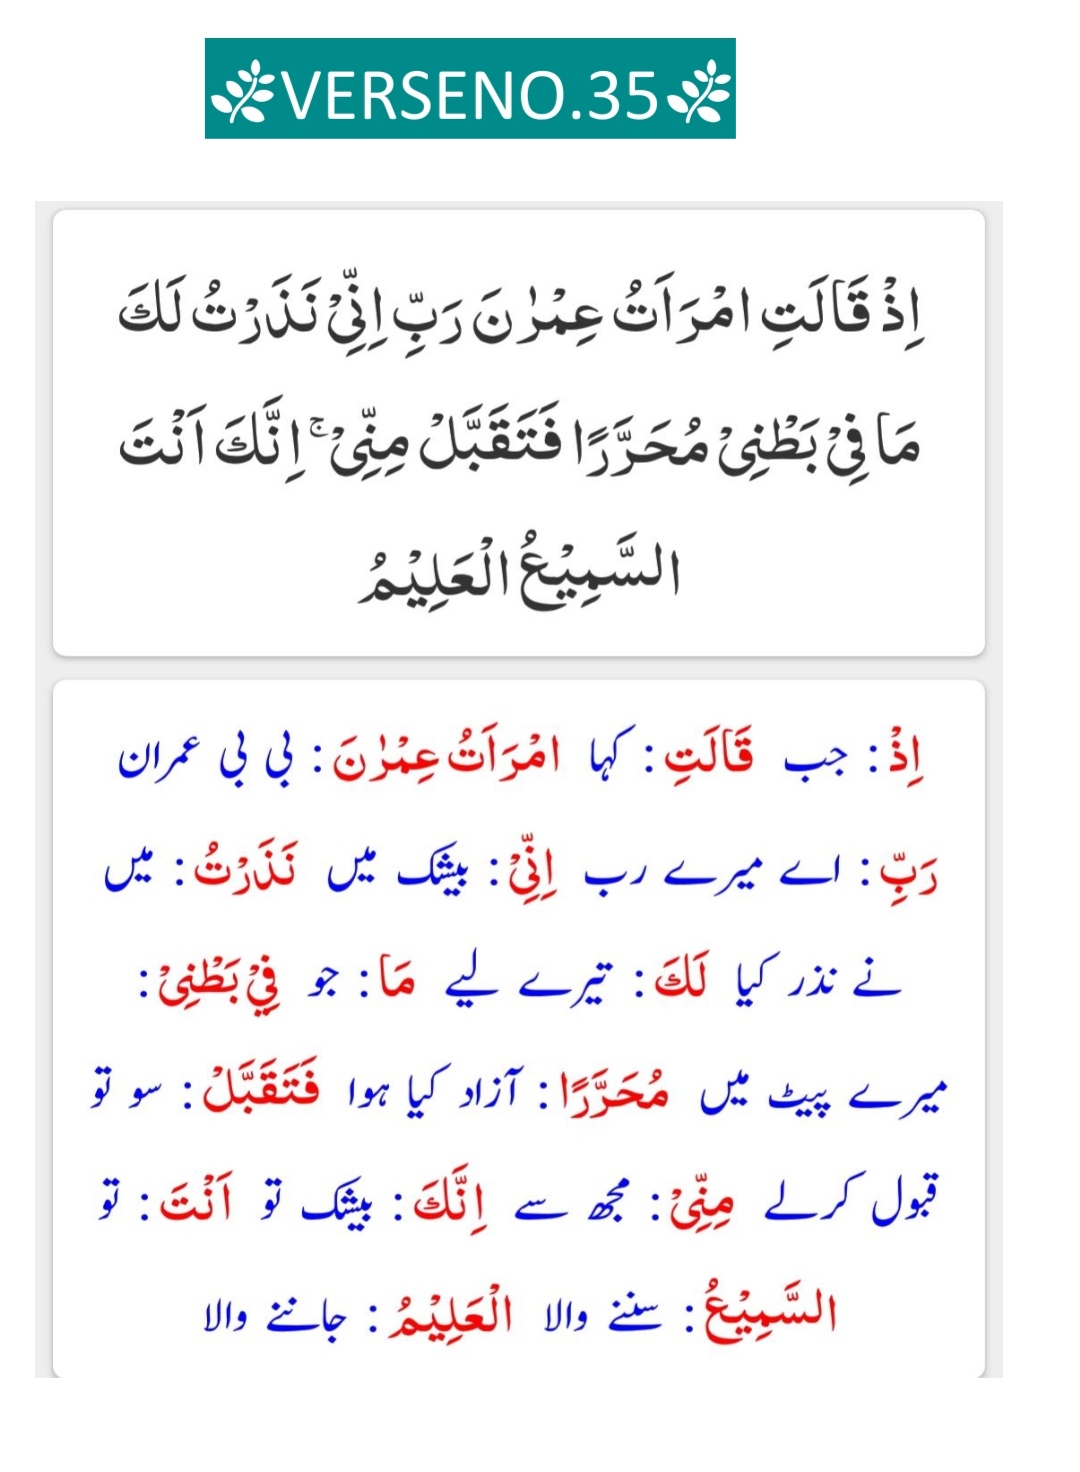 VERSENO.35
اِذْ قَالَتِ امْرَاَتُ عِمْرٰنَ رَبِّ اِنِّیْ نَذَرْتُ لَكَ
مَا فِیْ بَطْنِیْ مُحَرَّرًا فَتَقَبَّلْ مِنِّیْ ۚ اِنَّكَ اَنْتَ
السَّمِیْعُ الْعَلِیْمُ
اِذْ : جب قَالَتِ : کہا امْرَاَتُ عِمْرٰنَ : بی بی عمران
رَبِّ : اے میرے رب اِنِّیْ : بیشک میں نَذَرْتُ : میں
نے نذر کیا لَكَ : تیرے لیے مَا : جو فِیْ بَطْنِیْ :
میرے پیٹ میں مُحَرَّرًا : آزاد کیا ہوا فَتَقَبَّلْ : سو تو
قبول کرلے مِنِّیْ : مجھ سے اِنَّكَ : بیشک تو اَنْتَ : تو
السَّمِیْعُ : سننے والا الْعَلِیْمُ : جاننے والا